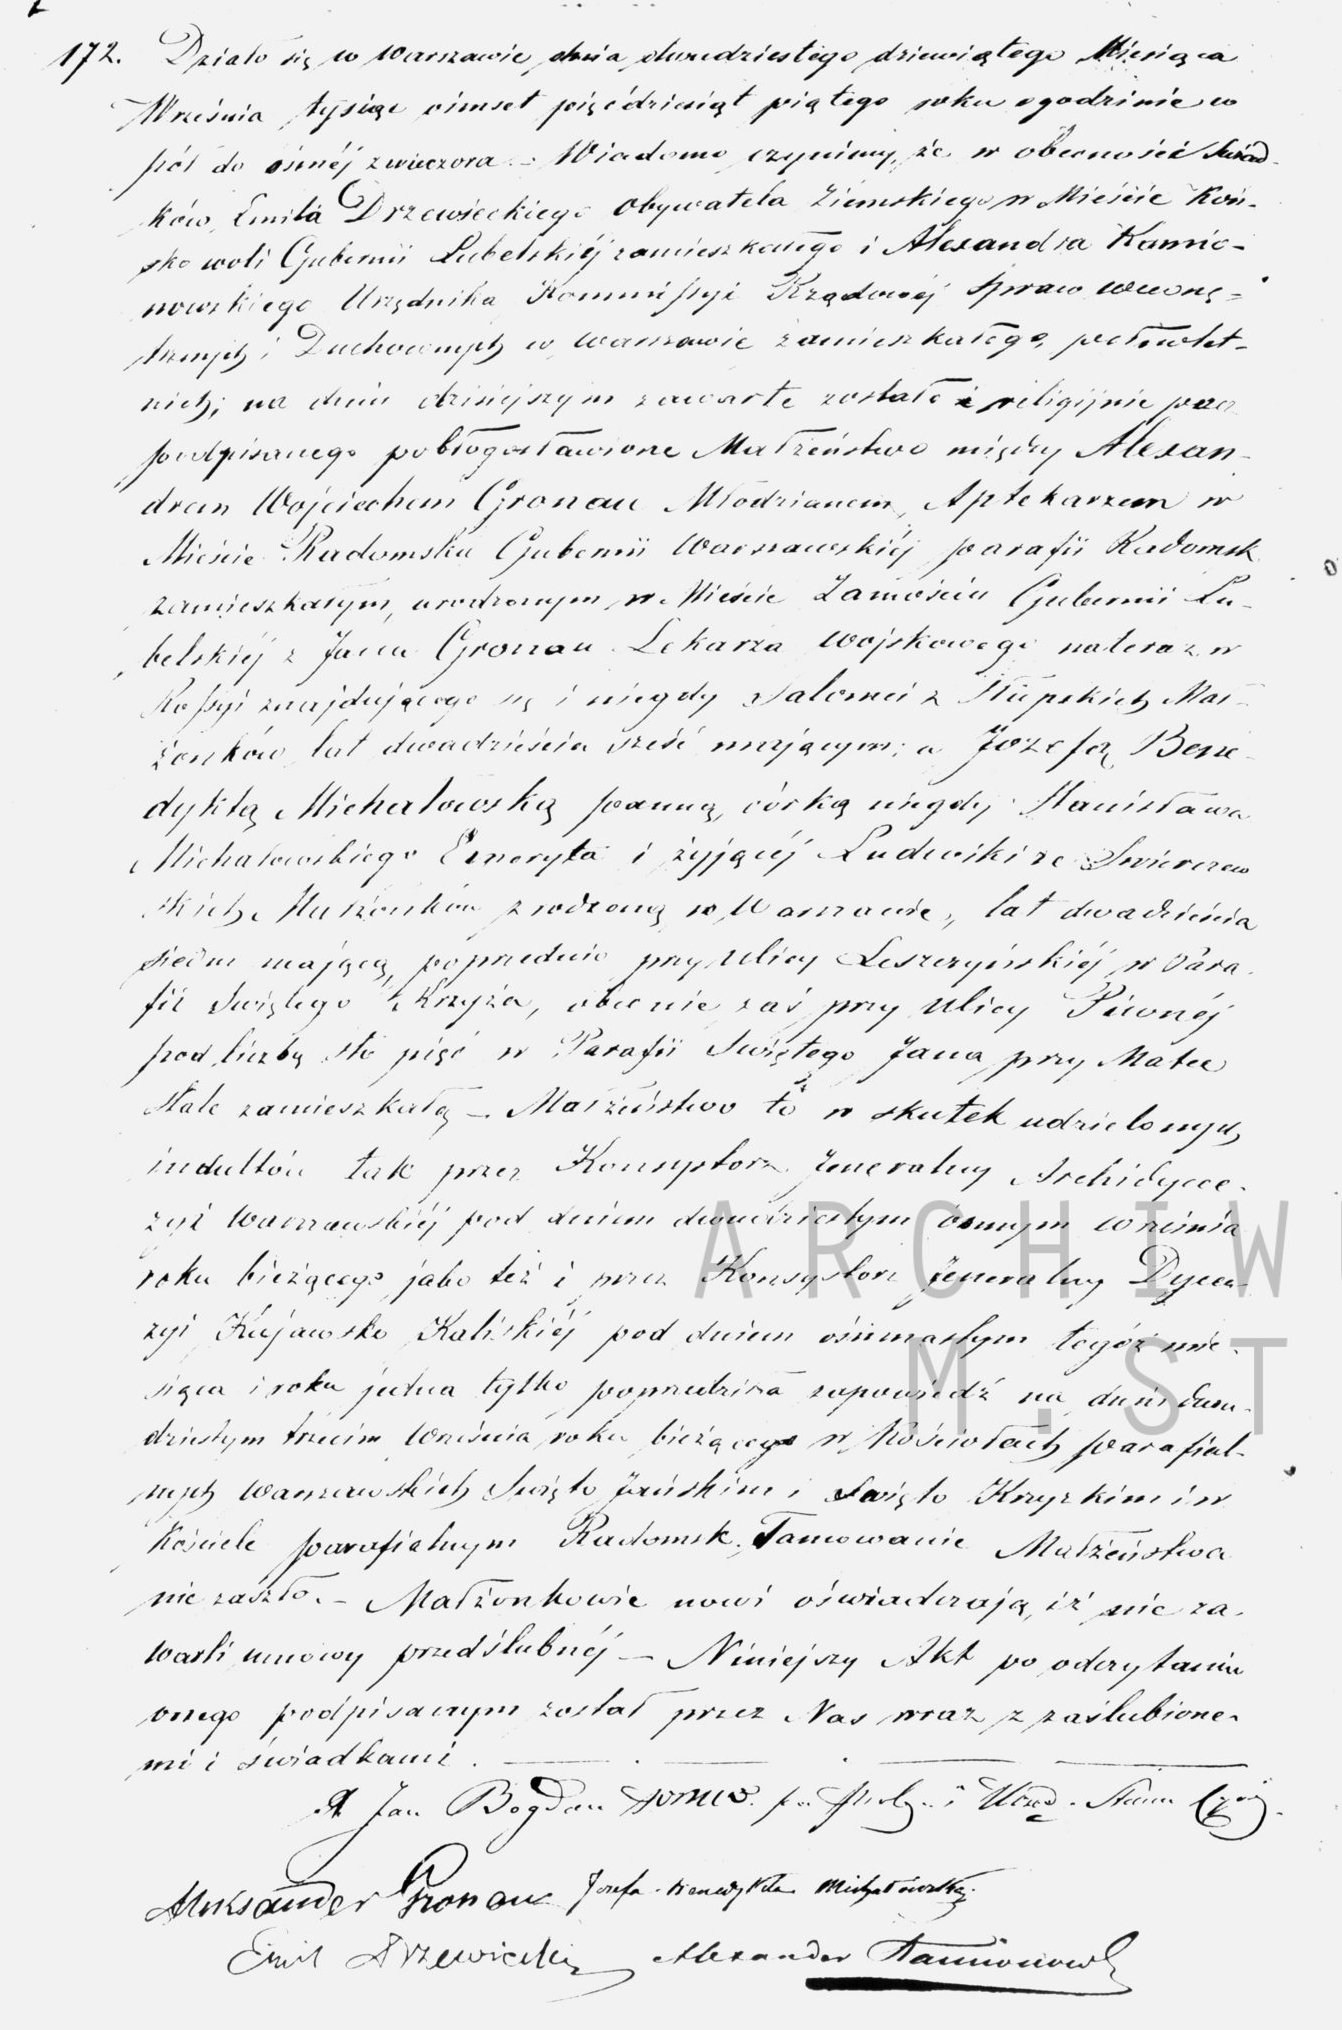 172. Działo się w Warszawie dnia dwudziestego dziewiątego Miesiąca
Września tysiąc ośmset pięćdziesiąt piątego roku o godzinie w
pół do ósméj z wieczora. – Wiadomo czynimy, że w obecności Świad-
ków, Emila Drzewieckiego Obywatela Ziemskiego w Mieście Koń-
sko woli Gubernii Lubelskiéj zamieszkałego i Alexandra Kamio-
nowskiego Urzędnika Kommissyi Rządowéj Spraw Wewnę-
trznych i Duchownych w Warszawie zamieszkałego, pełnolet-
nich; na dniu dzisiejszym zawarte zostało i religijnie przez
podpisanego pobłogosławione Małżeństwo między Alexan-
drem Wojciechem Gronau Młodzianem, Aptekarzem w
Mieście Radomsku Gubernii Warszawskiéj parafii Radomsk
zamieszkałym, urodzonym w Mieście Zamościu Gubernii Lu-
belskiéj z Jana Gronau Lekarza Wojskowego na teraz w
Rossyi znajdującego się i niegdy Salomei z Słupskich Mał-
żonków, lat dwadzieścia sześć mającym; a Józefą Bene-
dyktą Michałowską panną, córką niegdy Stanisława
Michałowskiego Emeryta i żyjącéj Ludwiki ze Swierczew
skich Małżonków zrodzoną w Warszawie, lat dwadzieścia
siedm mającą, poprzednio przy Ulicy Leszczyńskiéj w Para-
fii Świętego Krzyża, obecnie zaś przy Ulicy Piwnéj
pod liczbą sto pięć w Parafii Świętego Jana przy Matce
stale zamieszkałą – Małżeństwo to w skutek udzielonych
indultów tak przez Konsystorz Jeneralny Archidyece-
zyi Warszawskiéj pod dniem dwudziestym osmym Września
roku bieżącego jako też i przez Konsystorz Jeneralny Dyece-
zyi Kujawsko Kaliskiéj pod dniem ośmnastym tegóż mie-
siąca i roku jedna tylko poprzedziła zapowiedź na dniu dwu-
dziestym trzecim Września roku bieżącego w Kościołach parafial-
nych Warszawskich Święto Jańskim i Święto Krzyzkim i w
Kościele parafialnym Radomsk. Tamowanie Małżeństwa
nie zaszło. – Małżonkowie nowi oświadczają, iż nie za-
warli umowy przedślubnéj – Niniejszy Akt po odczytaniu
onego podpisanym został przez Nas wraz z zaślubione-
mi i świadkami.
X Jan Bogdan
Aleksander Gronau Józefa Benedykta Michałowska
Emil Drzewiecki Alexander Kamionowski
ARCHIW
M. ST